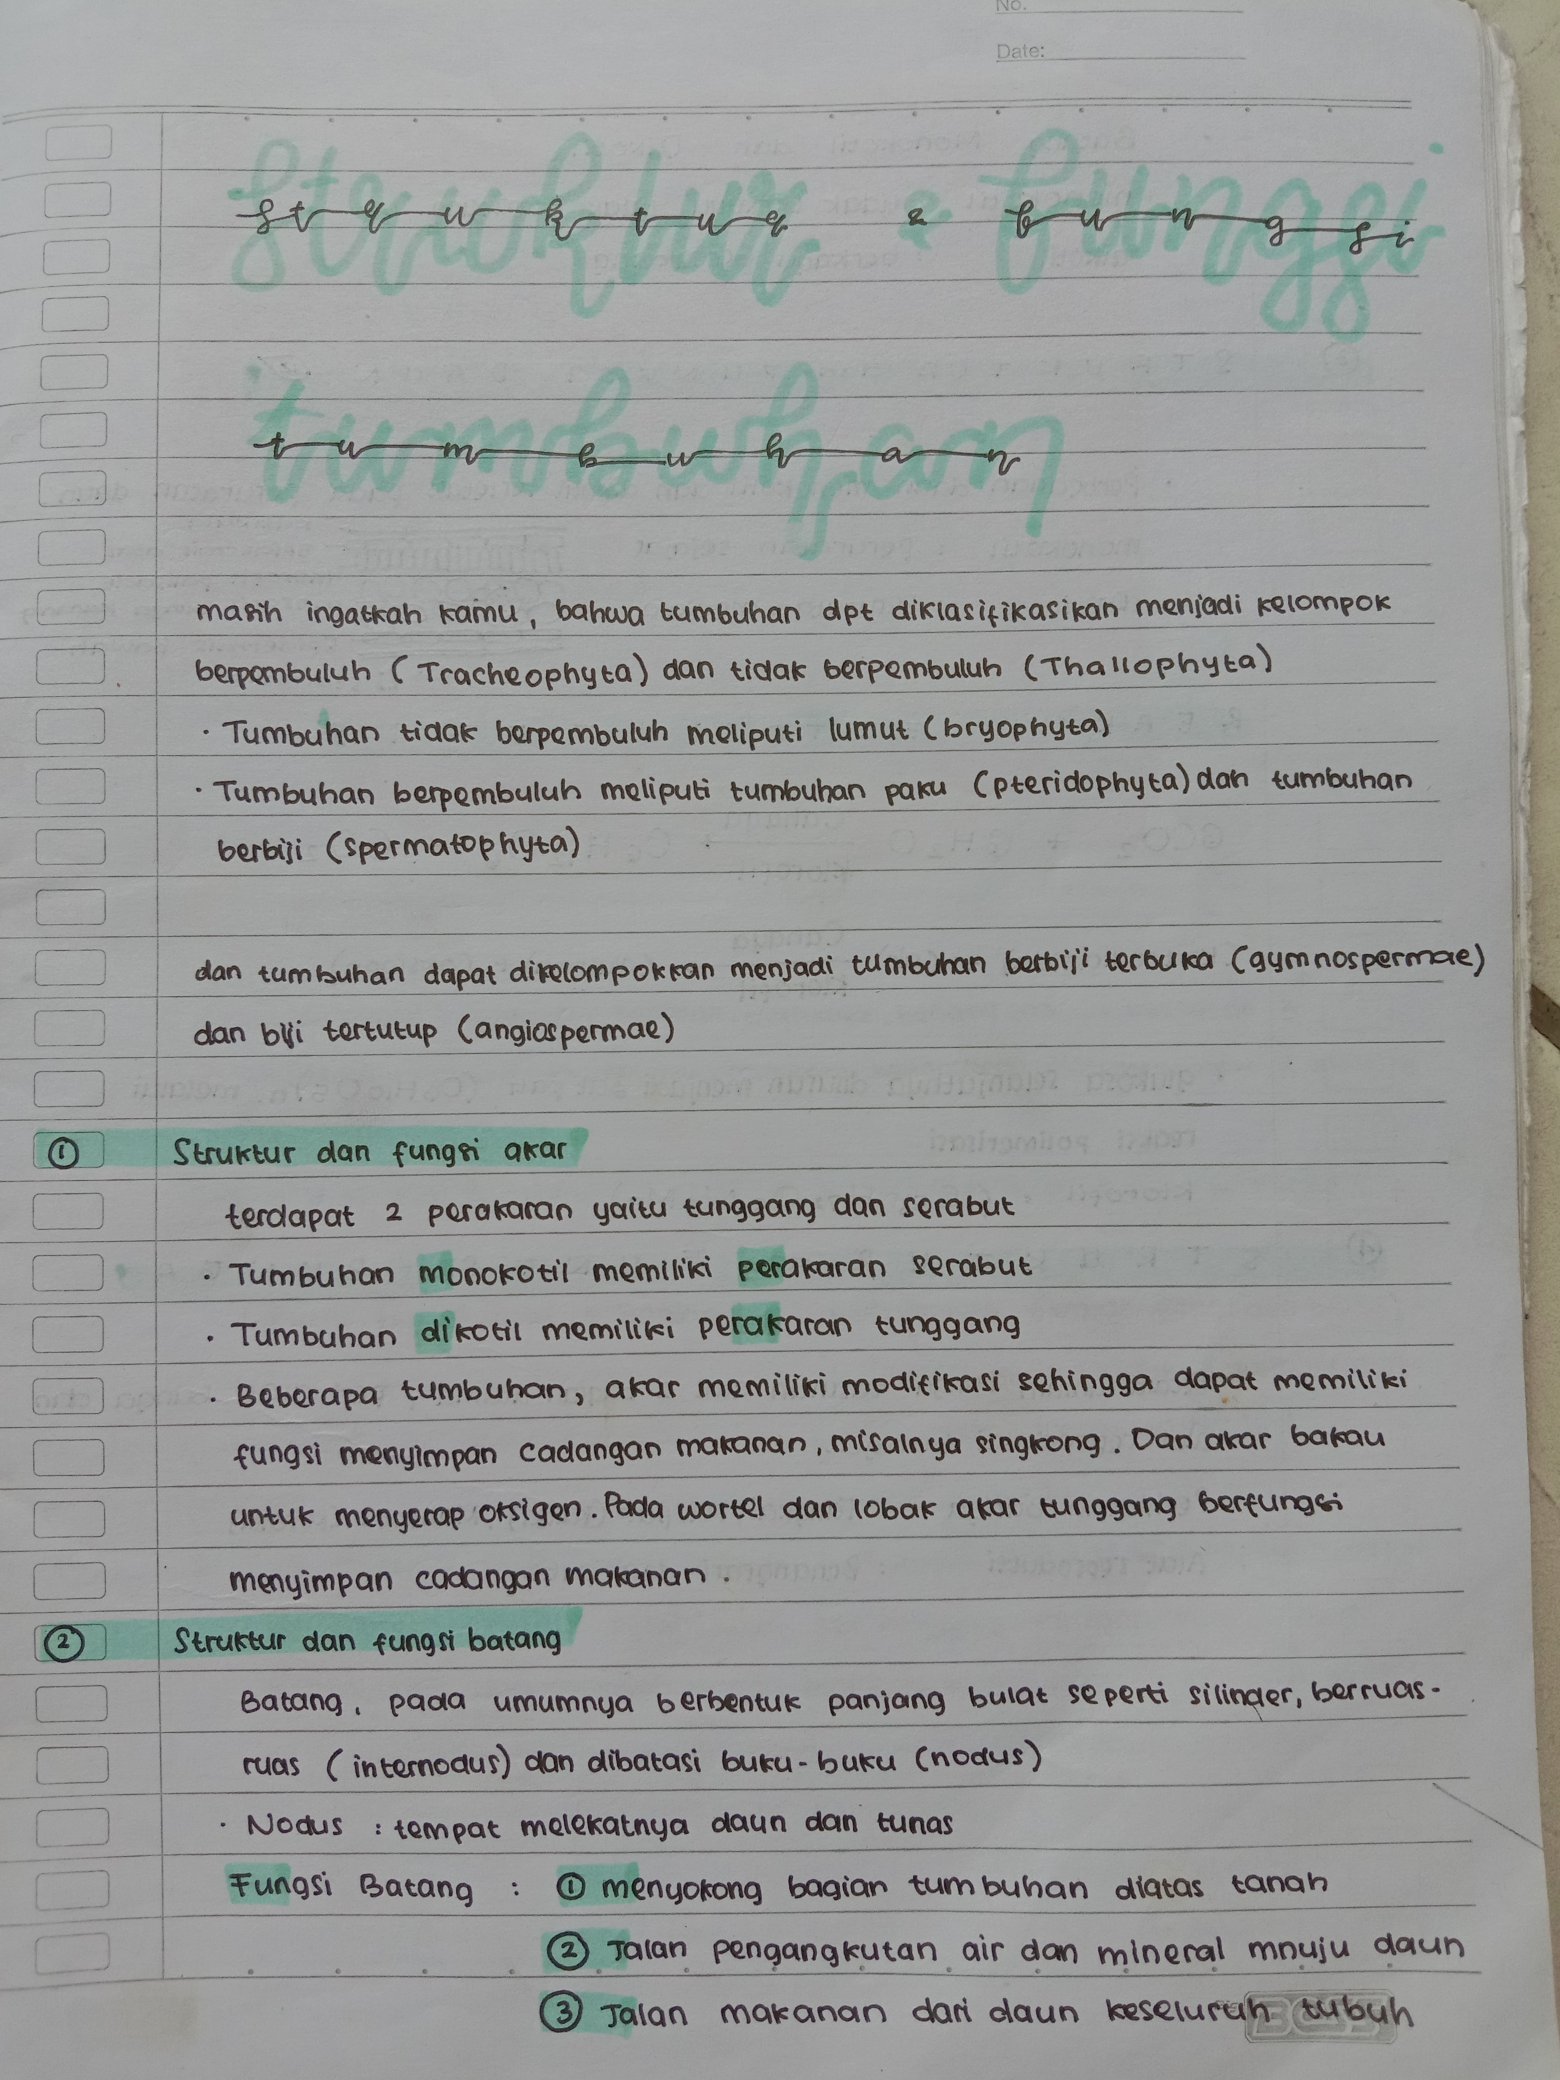 No.
Date:
Struktur & fungsi
tumbuhan
masih ingatkah kamu, bahwa tumbuhan dpt diklasifikasikan menjadi kelompok
berpembuluh (Tracheophyta) dan tidak berpembuluh (Thallophyta)
· Tumbuhan tidak berpembuluh meliputi lumut (bryophyta)
· Tumbuhan berpembuluh meliputi tumbuhan paku (pteridophyta) dan tumbuhan
berbiji (spermatophyta)
dan tumbuhan dapat dikelompokkan menjadi tumbuhan berbiji terbuka (gymnospermae)
dan biji tertutup (angiospermae)
① Struktur dan fungsi akar
terdapat 2 perakaran yaitu tunggang dan serabut
· Tumbuhan monokotil memiliki perakaran serabut
· Tumbuhan dikotil memiliki perakaran tunggang
· Beberapa tumbuhan, akar memiliki modifikasi sehingga dapat memiliki
fungsi menyimpan cadangan makanan, misalnya singkong. Dan akar bakau
untuk menyerap oksigen. Pada wortel dan lobak akar tunggang berfungsi
menyimpan cadangan makanan.
② Struktur dan fungsi batang
Batang, pada umumnya berbentuk panjang bulat seperti silinder, berruas-
ruas (internodus) dan dibatasi buku-buku (nodus)
· Nodus : tempat melekatnya daun dan tunas
Fungsi Batang : ① menyokong bagian tumbuhan diatas tanah
② Jalan pengangkutan air dan mineral mnuju daun
③ Jalan makanan dari daun keseluruh tubuh